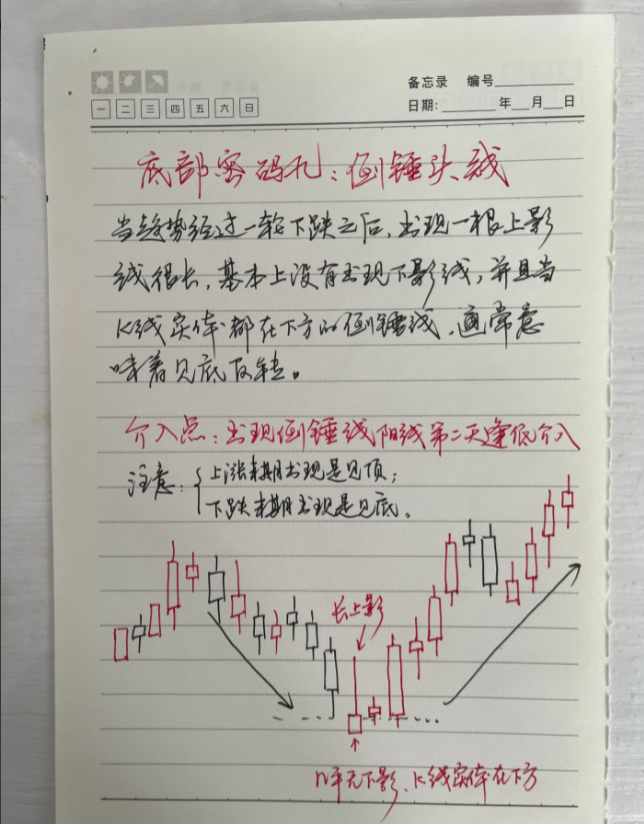 备忘录 编号
一 二 三 四 五 六 日
日期: 年 月 日
底部密码孔：倒锤头线
当趋势经过一轮下跌之后，出现一根上影
线很长，基本上没有出现下影线，并且当
K线实体都在下方的倒锤线，通常意
味着见底反转。
介入点：出现倒锤线阳线第二天逢低介入
注意：上涨末期出现是见顶；
下跌末期出现是见底。
长上影
几乎无下影、K线实体在下方